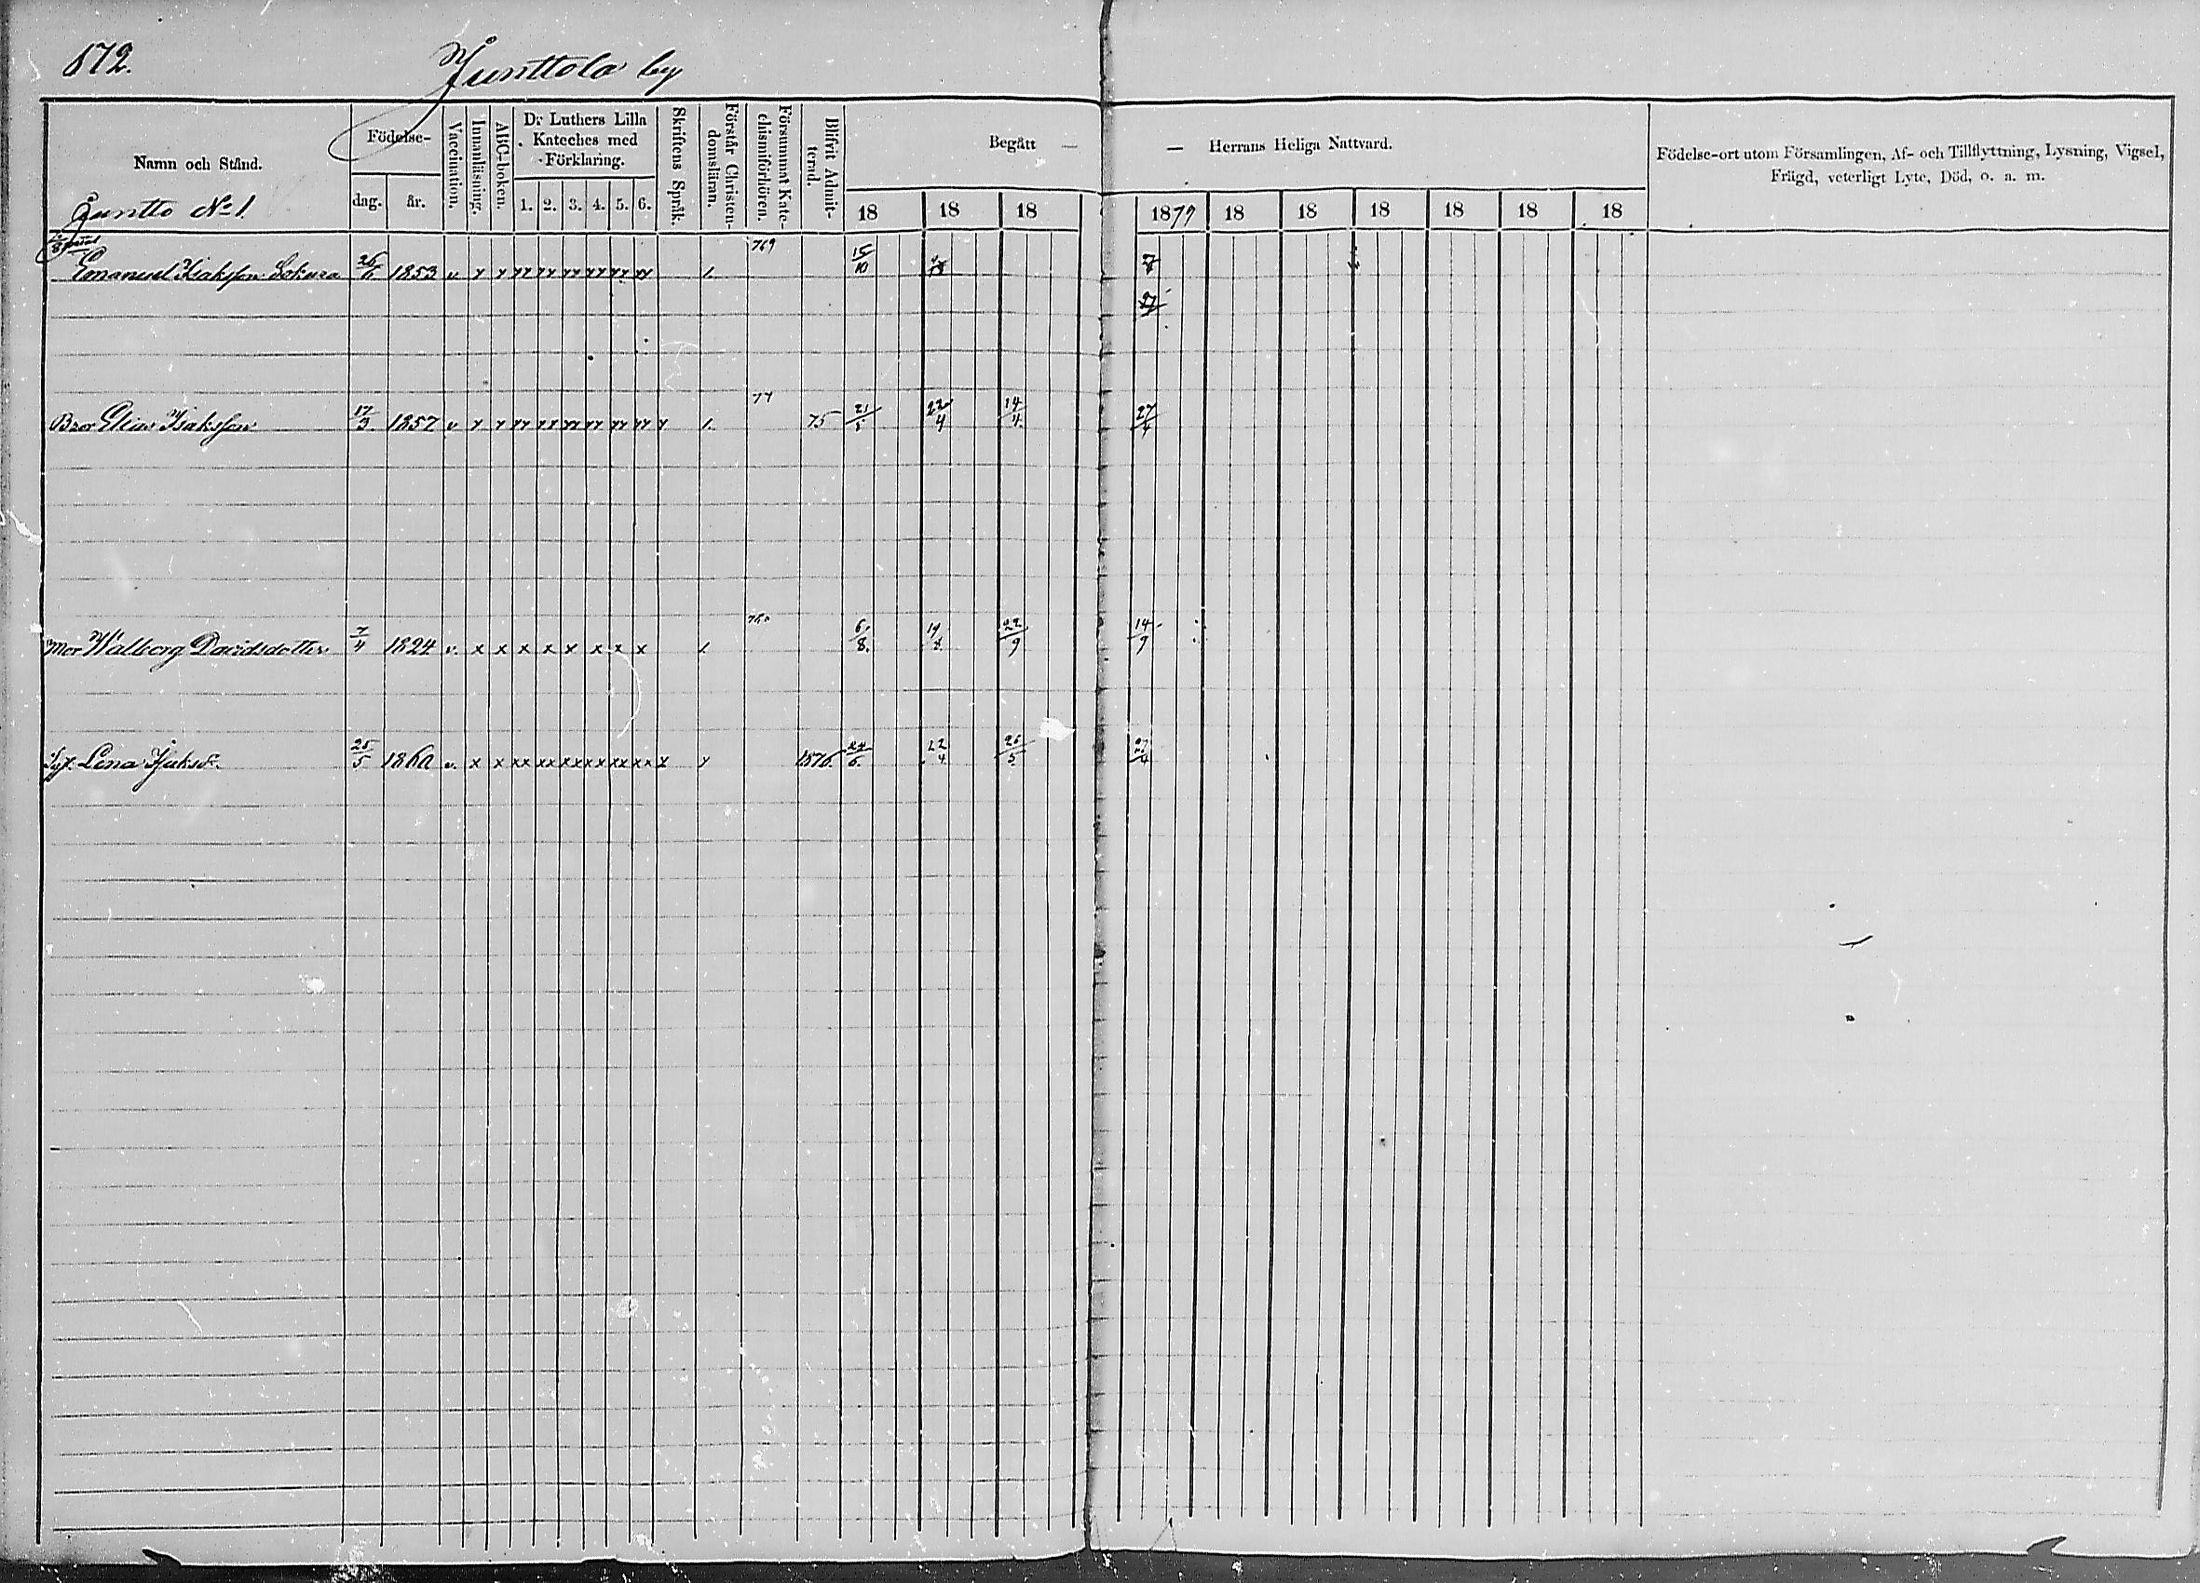 172.
Junttola by
Namn och Stånd.
Födelse-
dag.
år.
Vaccination.
Innanläsning.
ABC-boken.
Dr Luthers Lilla Kateches med Förklaring.
1. 2. 3. 4. 5. 6.
Skriftens Språk.
Förstår Christendomsläran.
Försummat Katechismiförhören.
Blifvit Admitterad.
Begått — — Herrans Heliga Nattvard.
18 18 18 1879 18 18 18 18 18 18
Födelse-ort utom Församlingen, Af- och Tillflyttning, Lysning, Vigsel,
Frägd, veterligt Lyte, Död, o. a. m.
Juntto No 1.
Emanuel Isaksson 26/6 1853 v x x xx xx xx xx xx xx 1. 769 15/10
27/4
Bror Elias Isaksson 17/3 1857 v x x xx xx xx xx xx xx x 1. 77 75 21/5 22/4 14/4 27/4
Mor Walborg Davidsdotter 7/4 1824 v. x x x x x x x x 1. 6/8. 22/9 14/9
Syst. Lina Isaksd. 25/5 1860 v. x x xx xx xx xx xx xx x x 1876. 24/6. 22/4 26/5 27/4